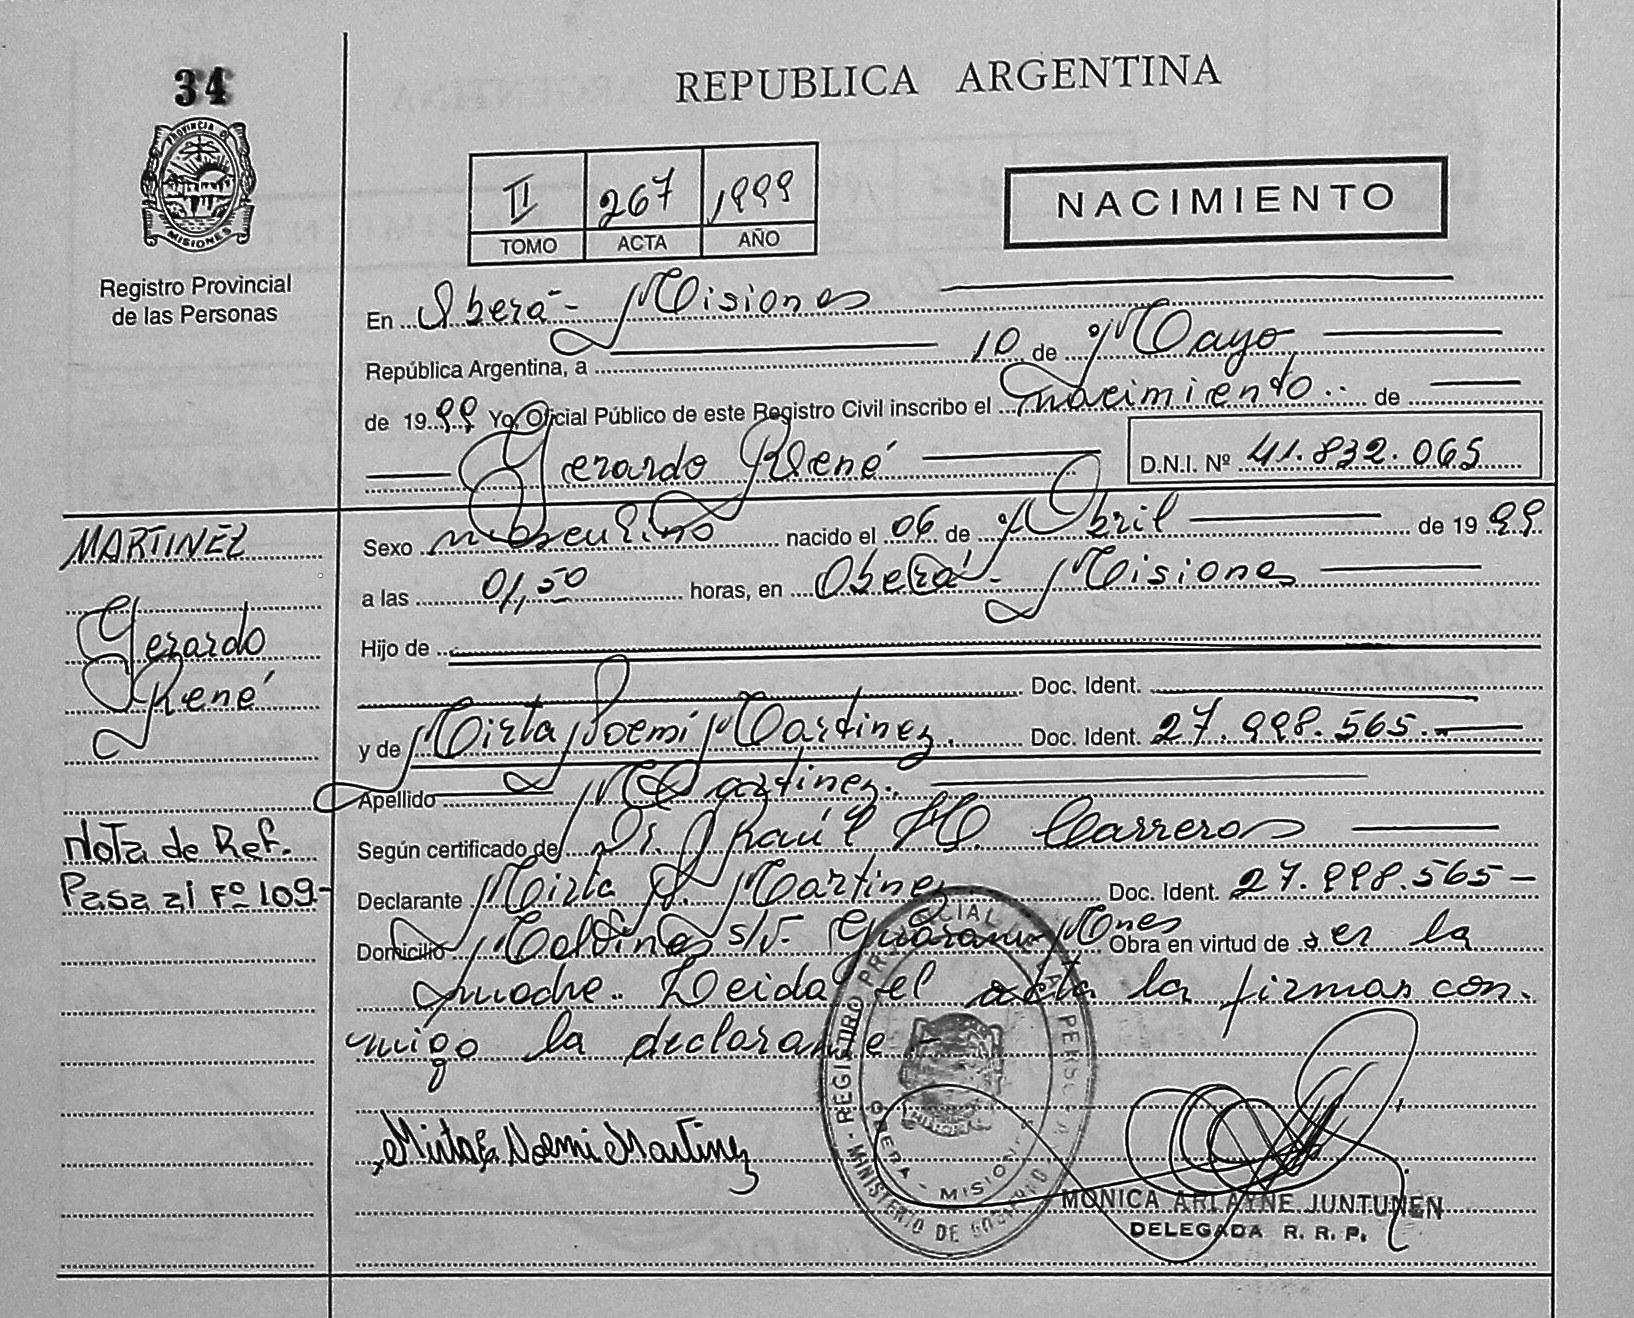 34
REPUBLICA ARGENTINA
PROVINCIA DE
MISIONES
Registro Provincial
de las Personas
II 267 1999
TOMO ACTA AÑO
NACIMIENTO
En Oberá - Misiones
República Argentina, a 10 de Mayo
de 1999 Yo, Oficial Público de este Registro Civil inscribo el nacimiento de
Gerardo René
D.N.I. Nº 41.832.065
MARTINEZ
Gerardo
René
Sexo masculino nacido el 06 de Abril de 1999
a las 01,50 horas, en Oberá - Misiones
Hijo de
Doc. Ident.
y de Mirta Noemi Martinez. Doc. Ident. 27.998.565.-
Apellido Martinez.
Según certificado de Dr. Raúl H. Carreros
Nota de Ref.
Pasa al Fº 109-
Declarante Mirta N. Martinez Doc. Ident. 27.998.565-
Domicilio Malvinas s/n. Guaraní Mnes Obra en virtud de ser la
madre. Leida el acta la firman con-
migo la declarante.-
Mirta Noemi Martinez
REGISTRO PROVINCIAL DE LAS PERSONAS
OBERA - MISIONES
MINISTERIO DE GOBIERNO
MONICA ARLAYNE JUNTUNEN
DELEGADA R. R. P.